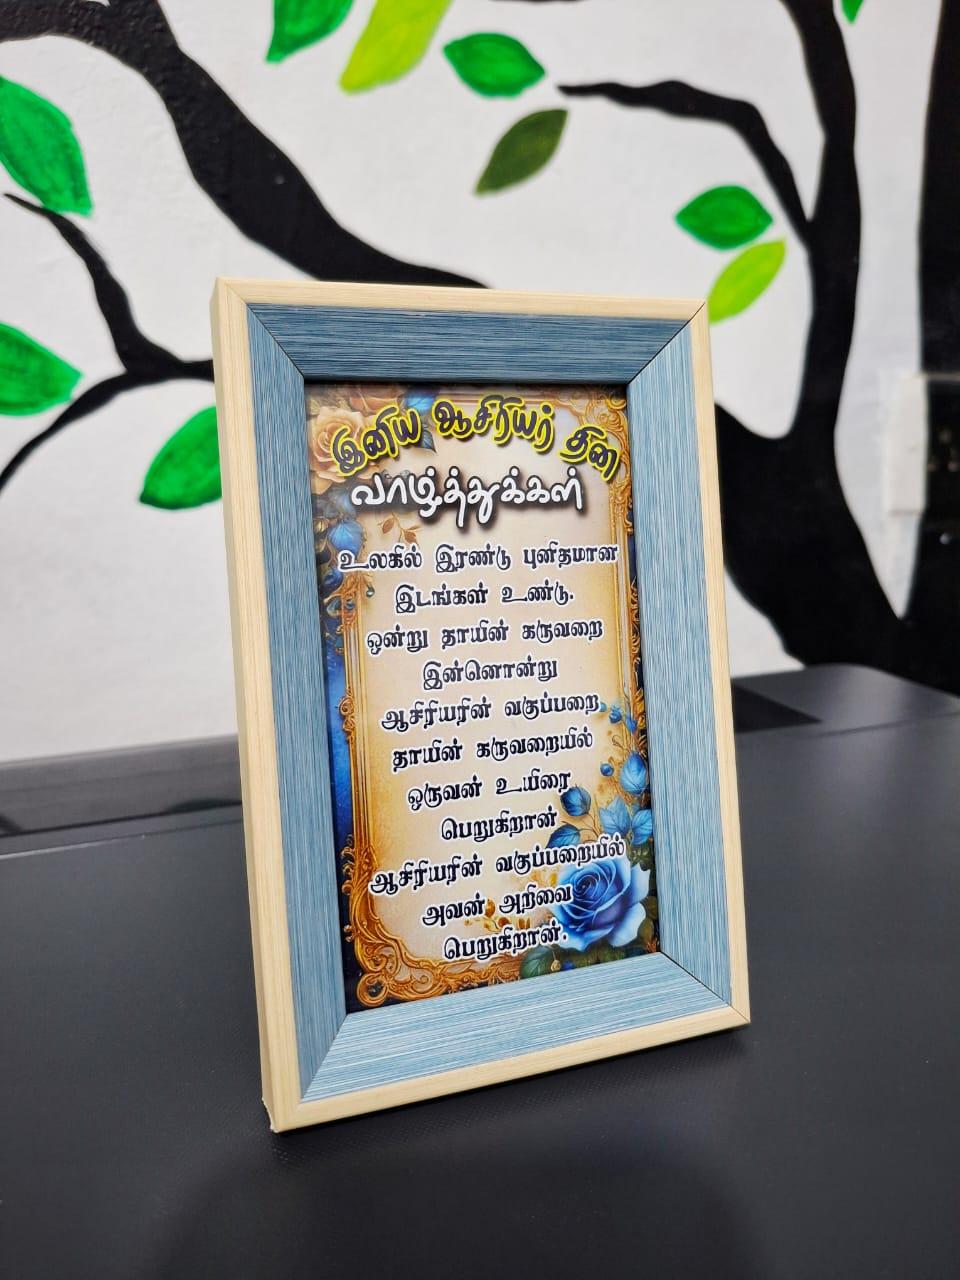 இனிய ஆசிரியர் தின
வாழ்த்துக்கள்
உலகில் இரண்டு புனிதமான
இடங்கள் உண்டு.
ஒன்று தாயின் கருவறை
இன்னொன்று
ஆசிரியரின் வகுப்பறை
தாயின் கருவறையில்
ஒருவன் உயிரை
பெறுகிறான்
ஆசிரியரின் வகுப்பறையில்
அவன் அறிவை
பெறுகிறான்.